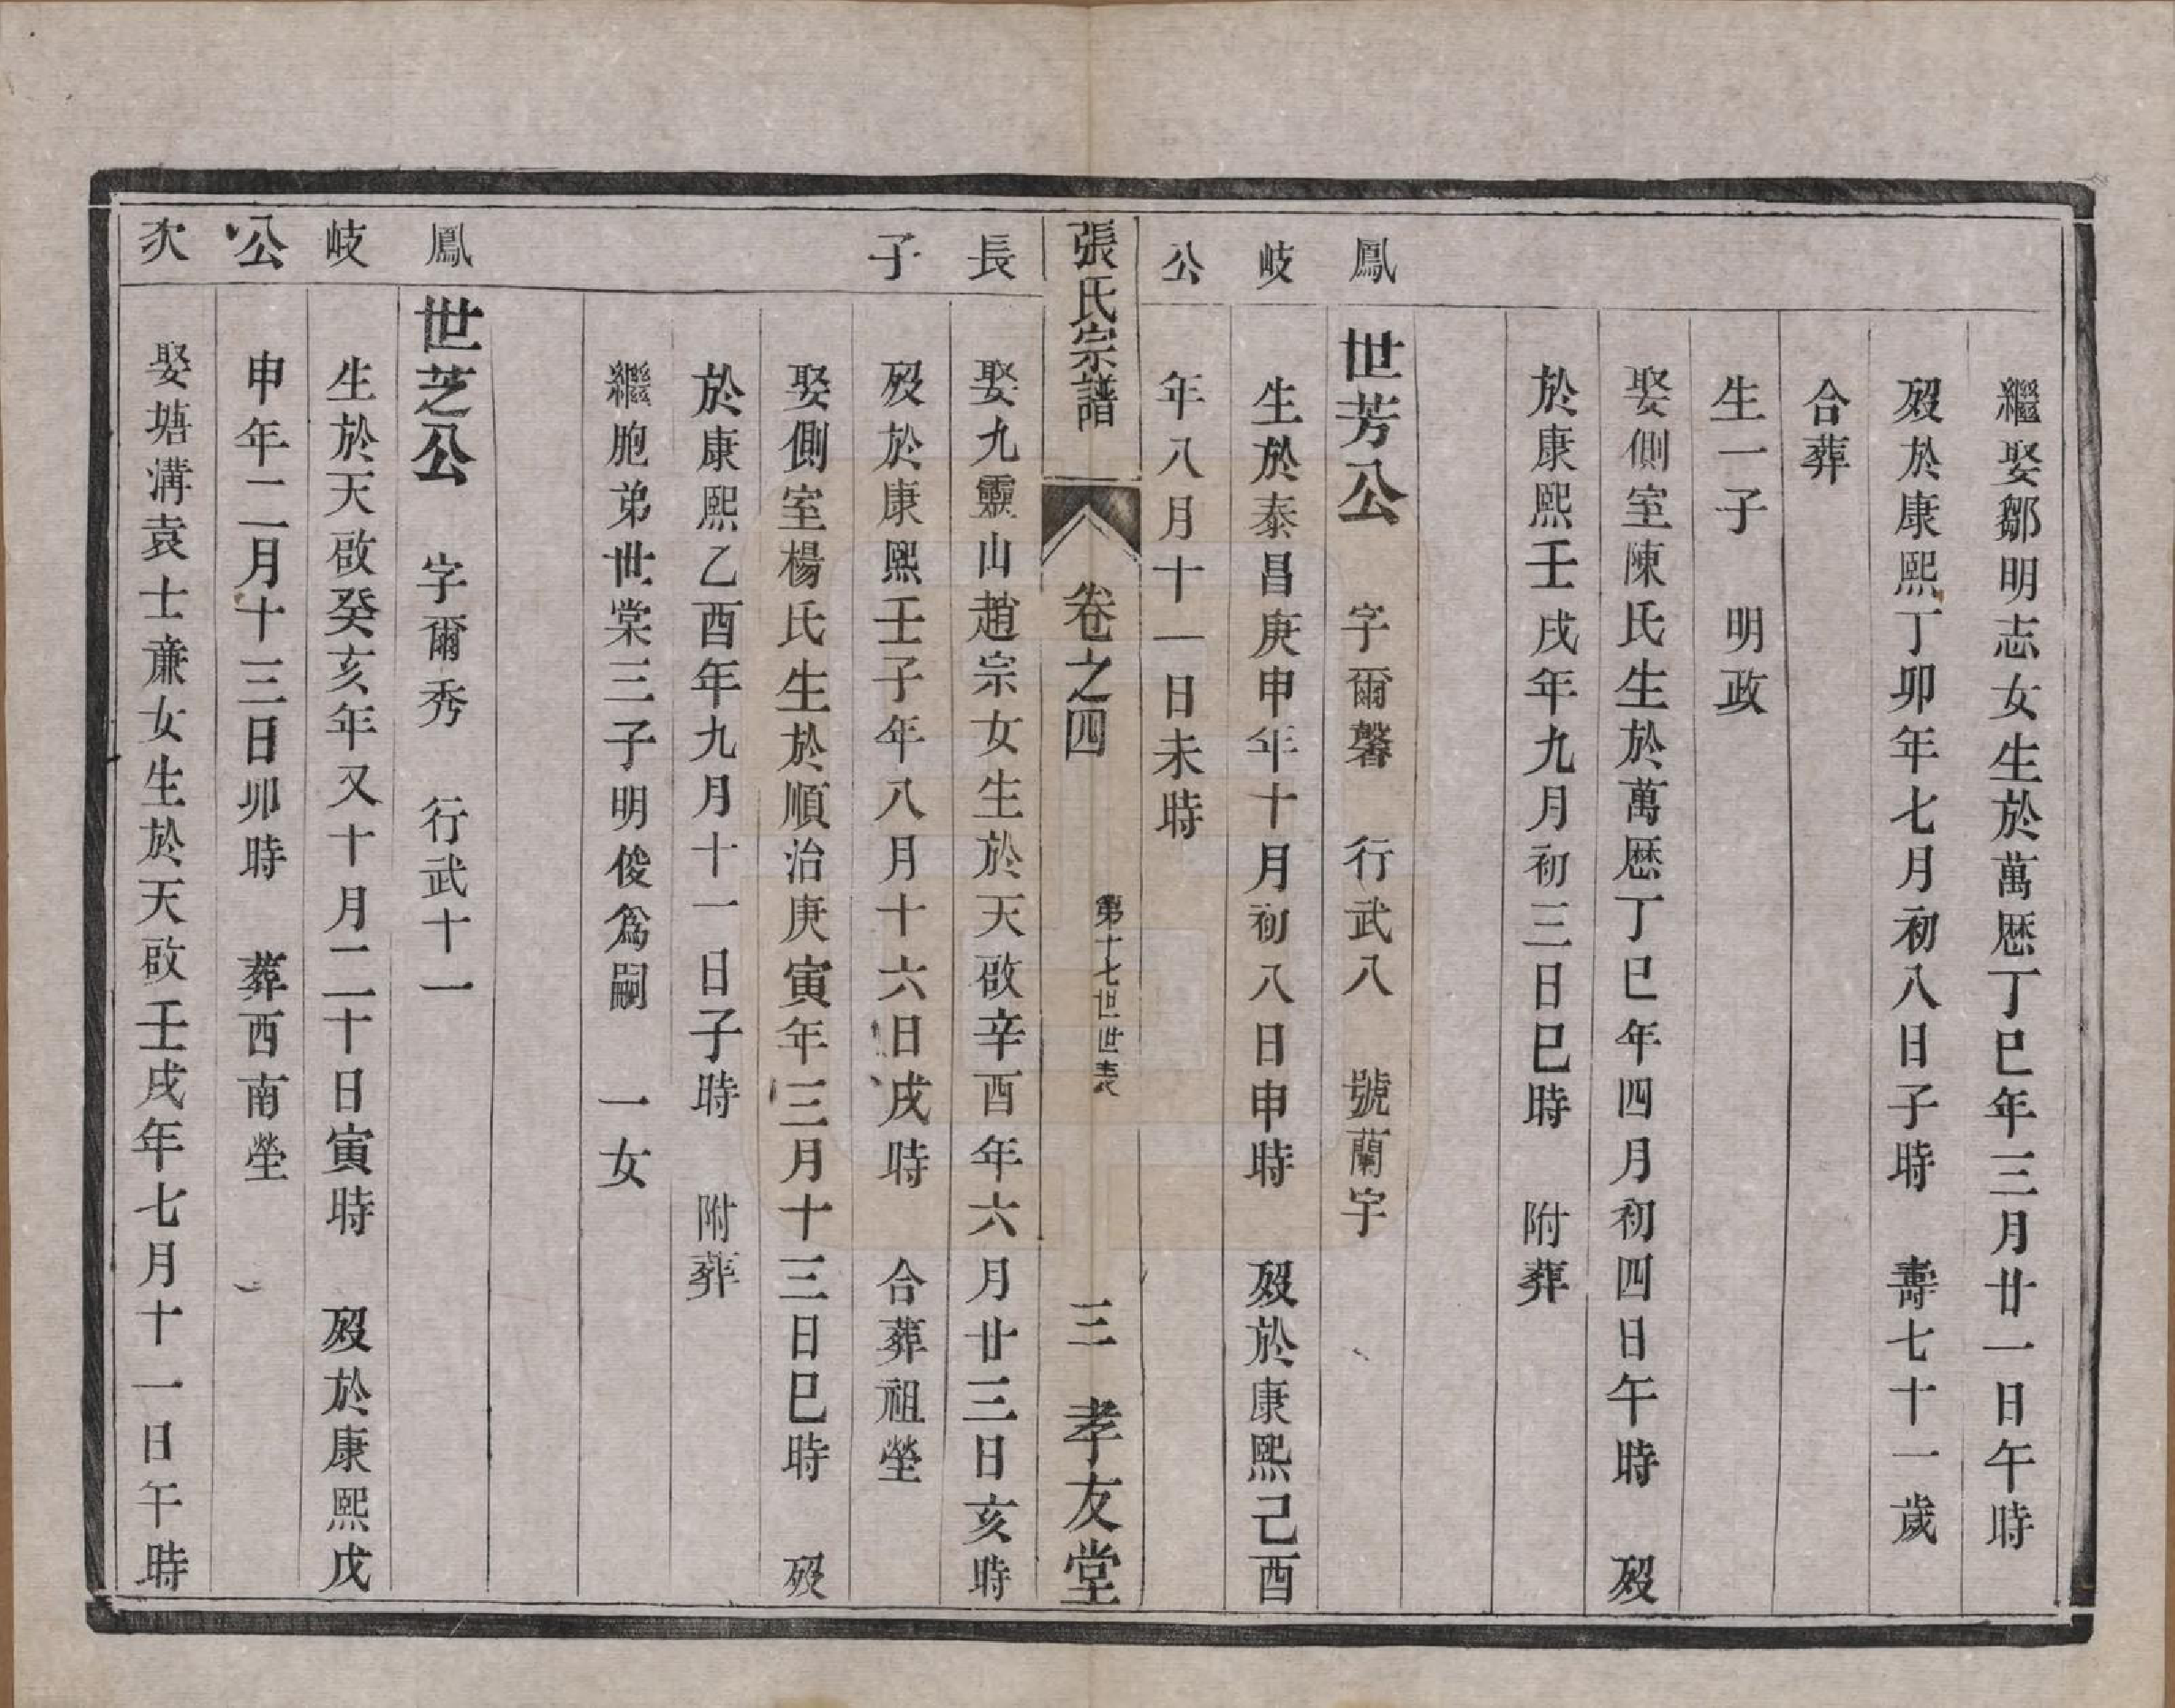 繼娶鄒明志女生於萬歷丁巳年三月廿一日午時
歿於康熙丁卯年七月初八日子時　壽七十一歲
合葬
生一子　明政
娶側室陳氏生於萬歷丁巳年四月初四日午時　歿
於康熙壬戌年九月初三日巳時　附葬
鳳　世芳公　字爾馨　行武八　號蘭宇
岐　生於泰昌庚申年十月初八日申時　歿於康熙己酉
公　年八月十一日未時
張氏宗譜　卷之四　第十七世世表　三　孝友堂
長　娶九靈山趙宗女生於天啟辛酉年六月廿三日亥時
子　歿於康熙壬子年八月十六日戌時　合葬祖塋
娶側室楊氏生於順治庚寅年三月十三日巳時　歿
於康熙乙酉年九月十一日子時　附葬
繼胞弟世棠三子明俊爲嗣　一女
鳳　世芝公　字爾秀　行武十一
岐　生於天啟癸亥年又十月二十日寅時　歿於康熙戊
公　申年二月十三日卯時　葬西南塋
次　娶塘溝袁士亷女生於天啟壬戌年七月十一日午時